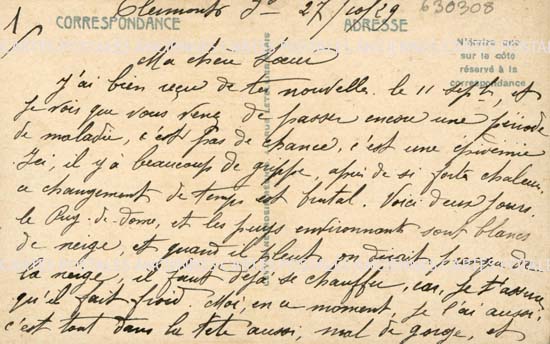 1
Clermont Fd 27/10/29
630308
CORRESPONDANCE
ADRESSE
N'écrire que
sur le côté
réservé à la
correspondance
Ma chère Soeur
J'ai bien reçue de tes nouvelle. le 11 Sept, et
je vois que vous venez de passer encore une période
de maladie, c'est pas de chance, c'est une épidémie
Ici, il y a beaucoup de grippe, après de si forte chaleur,
ce changement de temps est brutal. Voici deux jours
le Puy-de-dome, et les puys environnants sont blancs
de neige, et quand il pleut on dirait presque de
la neige, il faut déjà se chauffer, car, je t'assure
qu'il fait froid. Moi, en ce moment, je l'ai aussi,
c'est tout dans la tête aussi, mal de gorge, et